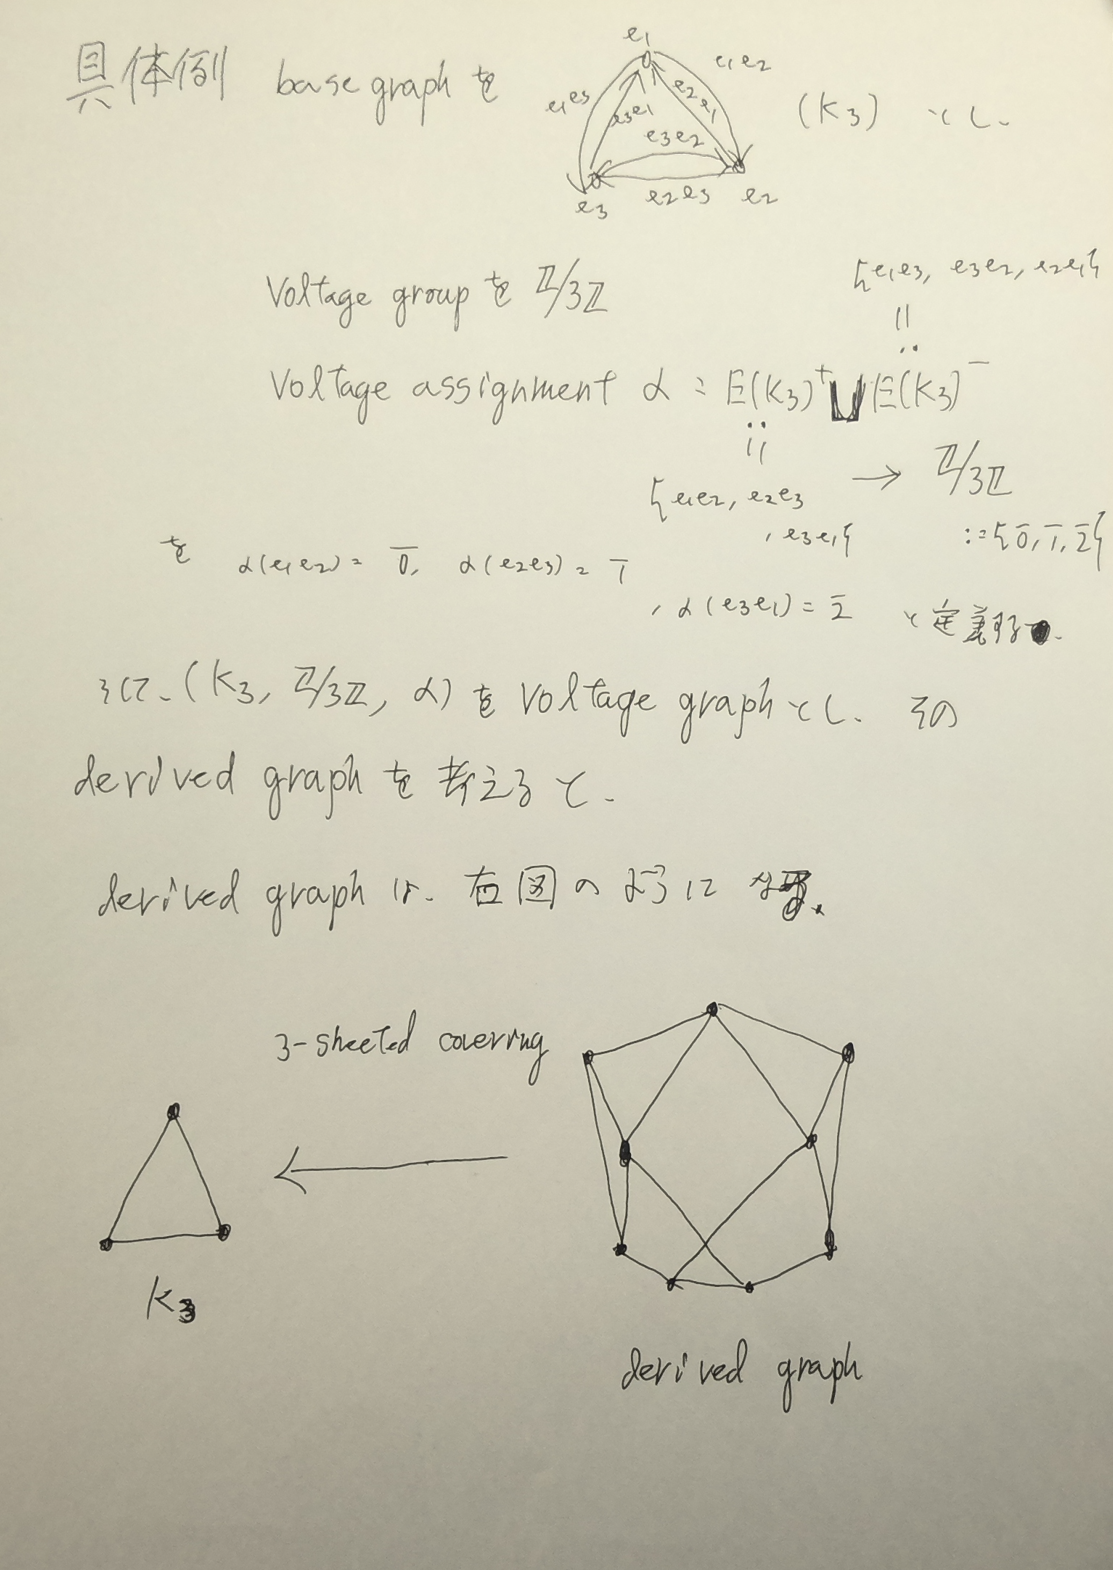 具体例 base graph を (K3) とし、
e1
e1e2
e1e3
e3e1
e2e1
e3e2
e3
e2e3
e2
Voltage group を ℤ/3ℤ
{e1e3, e3e2, e2e1}
Voltage assignment α : E(K3)⁺ ⊔ E(K3)⁻
{e1e2, e2e3, e3e1}
→ ℤ/3ℤ
:={0̄, 1̄, 2̄}
を α(e1e2) = 0̄, α(e2e3) = 1̄
, α(e3e1) = 2̄ と定義する.
そして、(K3, ℤ/3ℤ, α) を voltage graph とし、その
derived graph を考えると、
derived graph は、右図のように なる.
3-sheeted covering
K3
derived graph